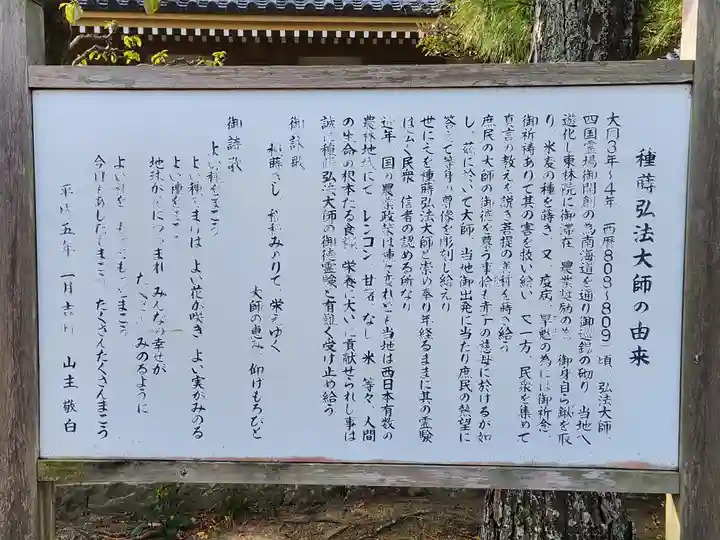 種蒔弘法大師の由来
大同3年～4年　西暦808～809　頃　弘法大師、
四国霊場御開創の為南海道を通り御巡錫の砌り、当地へ
遊化し東林院に御滞在、農業奨励の為、御身自ら鍬を取
り、米麦の種を蒔き、又、疫病、旱魃の為には御祈念
御祈祷ありて其の害を救い給い、又一方、民衆を集めて
真言の教えを説き菩提の善種を蒔き給う
庶民の大師の御徳を慕う事恰も赤子の慈母に於けるが如
し、茲に於いて大師、当地御出発に当たり庶民の熱望に
答えて等身の尊像を彫刻し給えり
世にこを種蒔弘法大師と崇め奉り年経るままに其の霊験
は広く民衆、信者の認める所なり
近年、国の農業政策は変われど、当地は西日本有数の
農林地域にて、レンコン、甘藷、なし、米、等々、人間
の生命の根本たる食糧、栄養に大いに貢献せられし事は
誠に種蒔弘法大師の御徳霊験と有難く受け止め給う
御詠歌
種蒔きし　稲穂みのりて、栄えゆく
大師の恵み　仰げもろびと
御讃歌
よい種をまこう
よい種をまけば　よい花が咲き　よい実がみのる
よい種をまこう
地球がにつつまれ　みんなの幸せが
たくさん　みのるように
よい種を　もっともっとまこう
今日もあしたもまこう　たくさんたくさんまこう
平成五年　一月吉日　山主　敬白